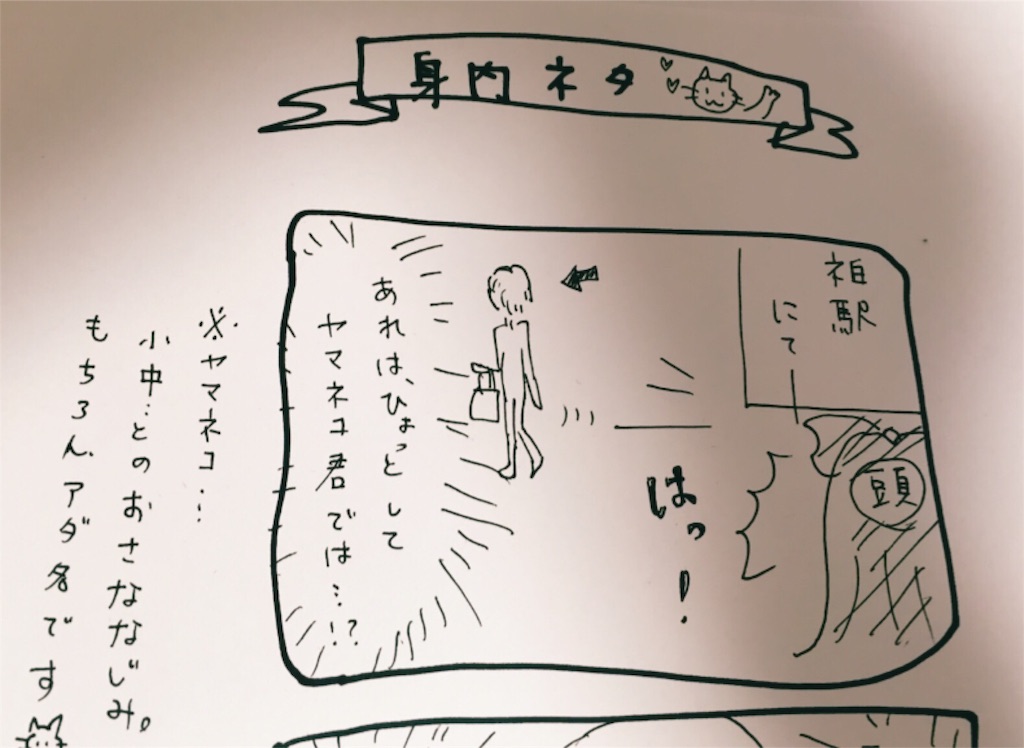 身内ネタ
祖駅
にて
頭
はっ!
あれは、ひょっとして
ヤマネコ君では…!?
※ヤマネコ…
小中…とのおさななじみ。
もちろん、アダ名です